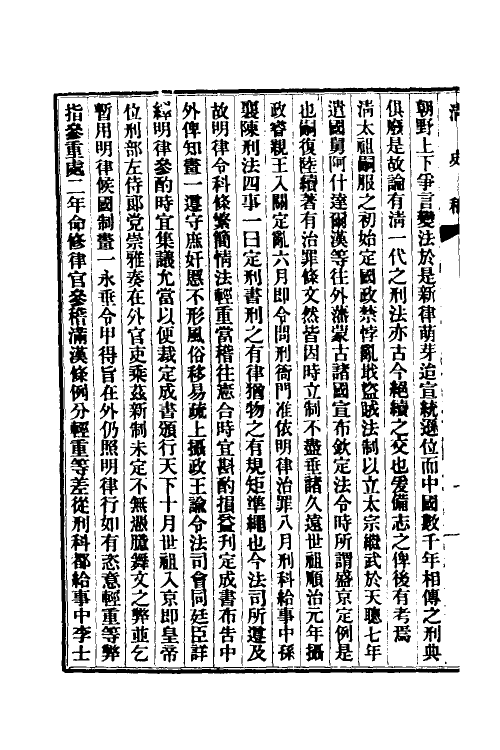 清史稿
朝野上下爭言變法於是新律萌芽迨宣統遜位而中國數千年相傳之刑典
俱廢是故論有清一代之刑法亦古今絕續之交也爰備志之俾後有考焉
清太祖嗣服之初始定國政禁悖亂戢盜賊法制以立太宗繼武於天聰七年
遣國舅阿什達爾漢等往外藩蒙古諸國宣布欽定法令時所謂盛京定例是
也嗣復陸續著有治罪條文然皆因時立制不盡垂諸久遠世祖順治元年攝
政睿親王入關定亂六月即令問刑衙門准依明律治罪八月刑科給事中孫
襄陳刑法四事一曰定刑書刑之有律猶物之有規矩準繩也今法司所遵及
故明律令科條繁簡情法輕重當稽往憲合時宜斟酌損益刊定成書布告中
外俾知畫一遵守庶奸慝不形風俗移易疏上攝政王諭令法司會同廷臣詳
繹明律參酌時宜集議允當以便裁定成書頒行天下十月世祖入京即皇帝
位刑部左侍郎党崇雅奏在外官吏乘茲新制未定不無憑臆舞文之弊並乞
暫用明律候國制畫一永垂令甲得旨在外仍照明律行如有恣意輕重等弊
指參重處二年命修律官參稽滿漢條例分輕重等差從刑科都給事中李士